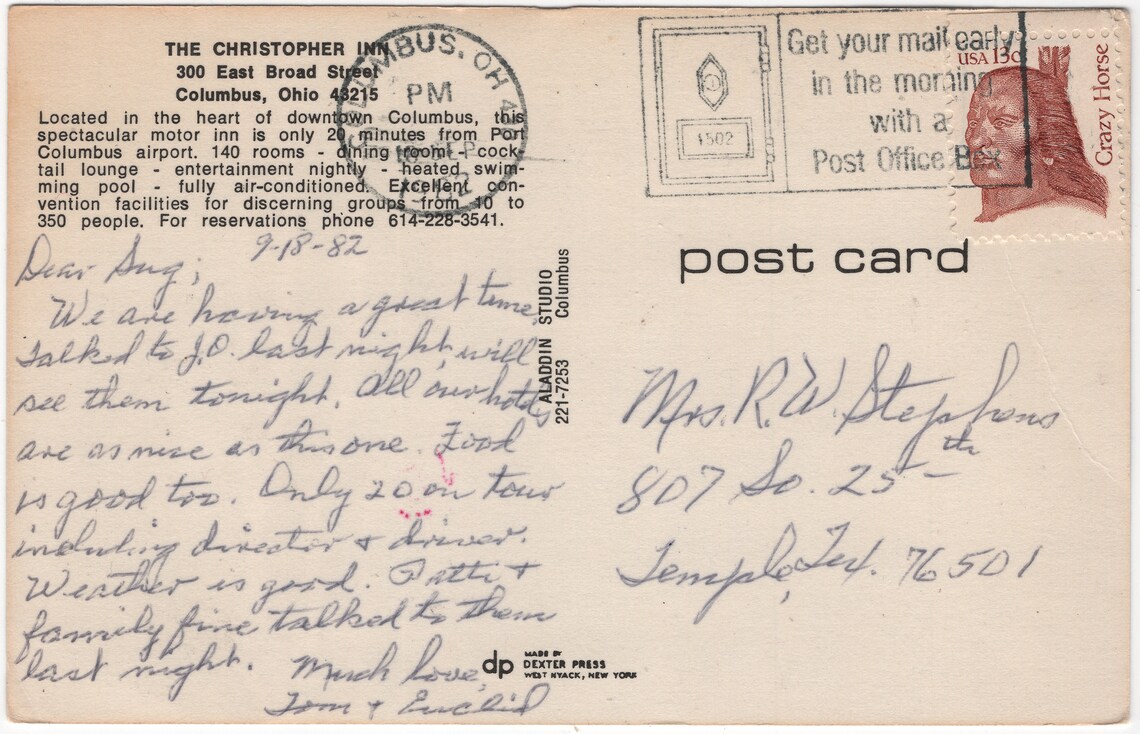 THE CHRISTOPHER INN
300 East Broad Street
Columbus, Ohio 43215
Located in the heart of downtown Columbus, this
spectacular motor inn is only 20 minutes from Port
Columbus airport. 140 rooms - dining room - cock-
tail lounge - entertainment nightly - heated swim-
ming pool - fully air-conditioned. Excellent con-
vention facilities for discerning groups from 10 to
350 people. For reservations phone 614-228-3541.
COLUMBUS, OH
PM
SEP
Get your mail early
in the morning
with a
Post Office Box
1502
USA 13c
Crazy Horse
post card
9-18-82
Dear Sug;
We are having a great time.
Talked to J.O. last night, will
see them tonight. All our hotels
are as nice as this one. Food
is good too. Only 20 on tour
including director + driver.
Weather is good. Patti +
family fine talked to them
last night. Much love,
Tom + Euclid
ALADDIN STUDIO
221-7253 Columbus
Mrs. R.W. Stephens
807 So. 25th
Temple, Tex. 76501
dp MADE BY
DEXTER PRESS
WEST NYACK, NEW YORK